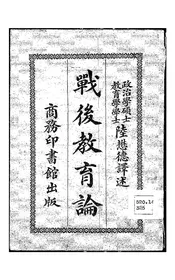 政治學碩士
教育學學士
陸懋德譯述
戰後教育論
商務印書館出版
520.14
325